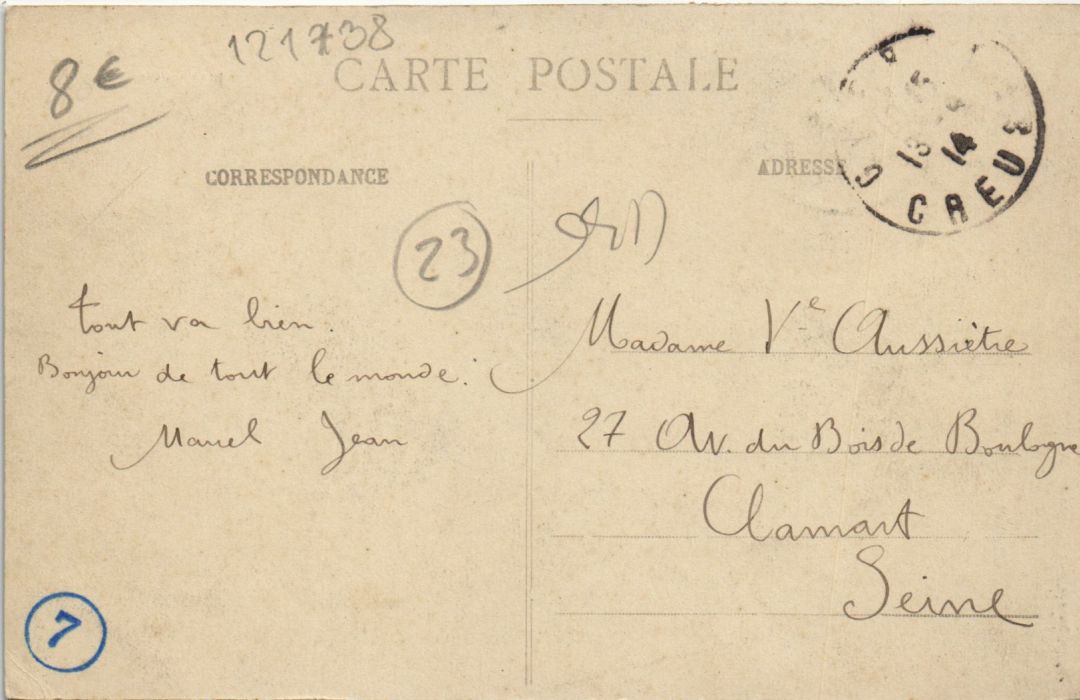 121738
8€
CARTE POSTALE
CORRESPONDANCE
ADRESSE
13
14
CREUSE
23
tout va bien.
Bonjour de tout le monde.
Marcel Jean
Madame Vᵉ Aussiètre
27 Av. du Bois de Boulogne
Clamart
Seine
7